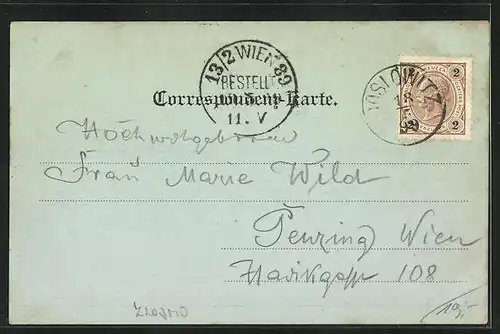 13/2 WIEN 89
BESTELLT
11. V
Correspondenz-Karte.
JOSLOWITZ
2 2
Hochwohlgeboren
Frau Marie Wild
Penzing Wien
Hadikgasse 108